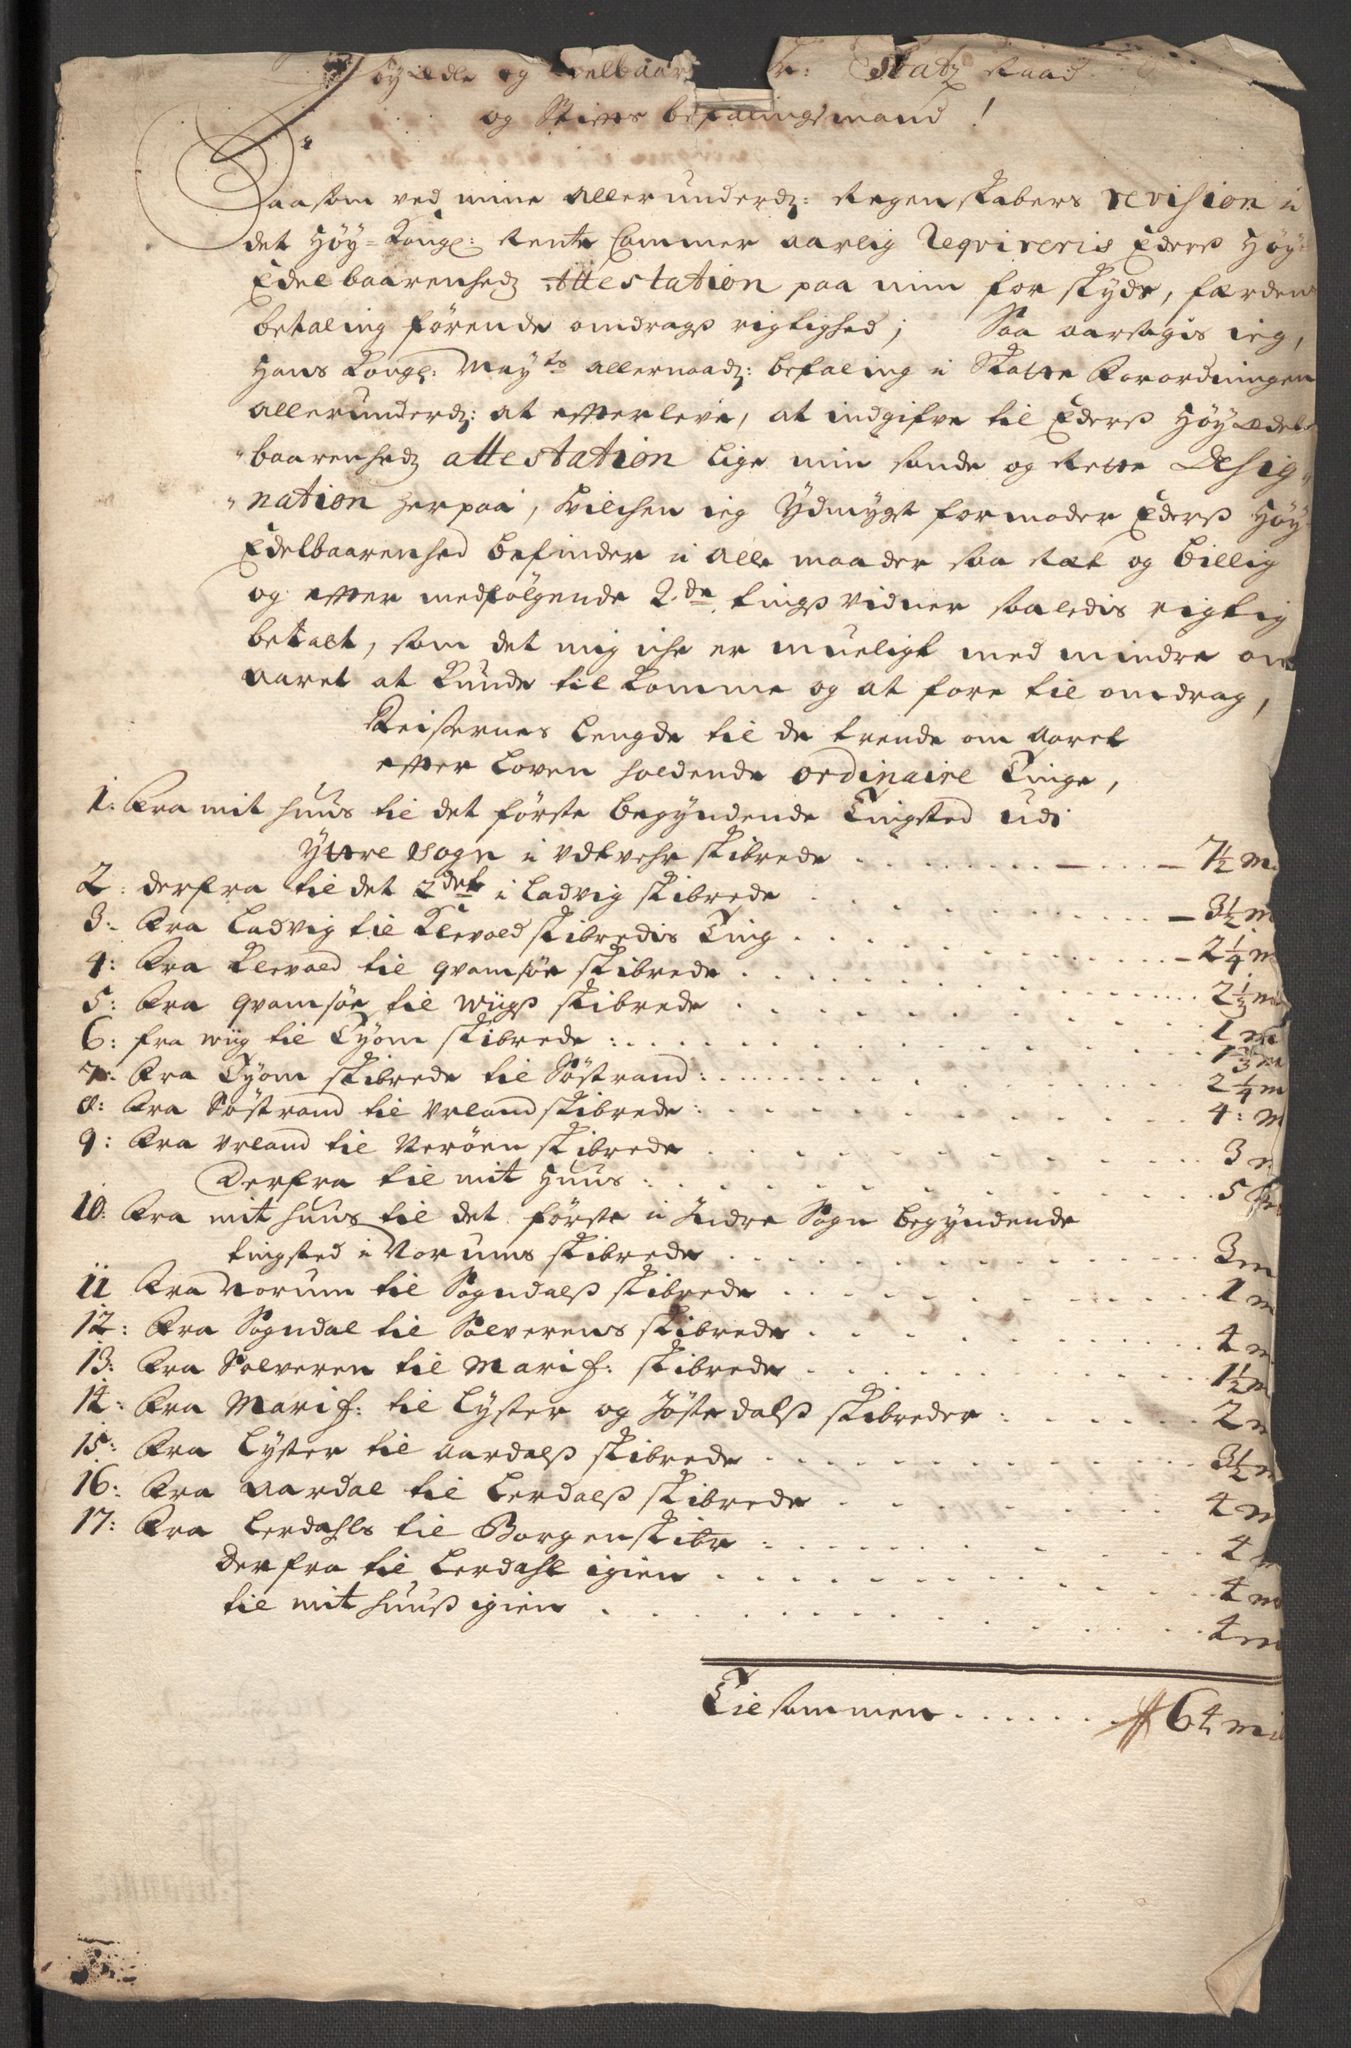 Høy Ædle og Velbaar Hr: Statz Raad
og Stifts befalingsmand!
Saasom ved mine allerunderdz: Regenskabers revision i
det Høy-Kongl: Rente Cammer aarlig Reqvireris Ederß Høy-
Edelbaarenhedz Attestation paa min for skyds, færdens
betaling førende omdragß rigtighed; Saa aarsagis ieg,
Hans Kongl: Mayts allernaadz: befaling i Skatte Forordningen
allerunderdz: at efterleve, at indgifve til Ederß Høy Ædel-
baarenhedz attestation lige min sande og Rette Desig-
nation herpaa, hvilchen ieg Ydmygst formoder Ederß Høy-
Edelbaarenhed befinder i alle maader saa Ræt og billig
og efter medfølgende 2de tingß vidner saaledis rigtig
betalt, som det mig iche er mueligt med mindre om
aaret at kunde til komme og at føre til omdrag,
Reisernes Lengde til de trende om aaret
efter Loven holdende ordinaire Tinge,
1: Fra mit huus til det første begyndende Tingsted udi
Yttre Sogn i Udtvehr skibrede - 7½ m
2: derfra til det 2det i Ladvig skibrede - 3½ m
3: Fra Ladvig til Klevold skibredis Ting - 2¼ m
4: Fra Klevold til qvamsøe skibrede 2½ m
5: Fra qvamsøe til Wiigß skibrede 1 m
6: fra wiig til Tyom skibrede: 1⅓ m
7: Fra Tyom skibrede til Søstrand: 2¼ m
8: Fra Søstrand til Urland skibrede: 4: m
9: Fra Urland til Verøen skibrede 3 m
Derfra til mit Huus: 5 m
10: Fra mit huus til det første i Indre Sogn begyndende
tingsted i Norums skibrede 3 m
11 Fra Norum til Sogndalß skibrede 1 m
12: Fra Sogndal til Solverens skibrede 4 m
13: Fra Solveren til Marif: skibrede 1½ m
14: Fra Marif: til Lyster og Jøstedalß skibreder: 2 m
15: Fra Lyster til Aardalß skibrede 3½ m
16: Fra Aardal til Lerdalß skibrede 4 m
17: Fra Lerdahls til Borgen skibr: 4 m
Derfra til Lerdahl igien 4 m
til mit huuß igien 4 m
Tilsammen # 64 mil